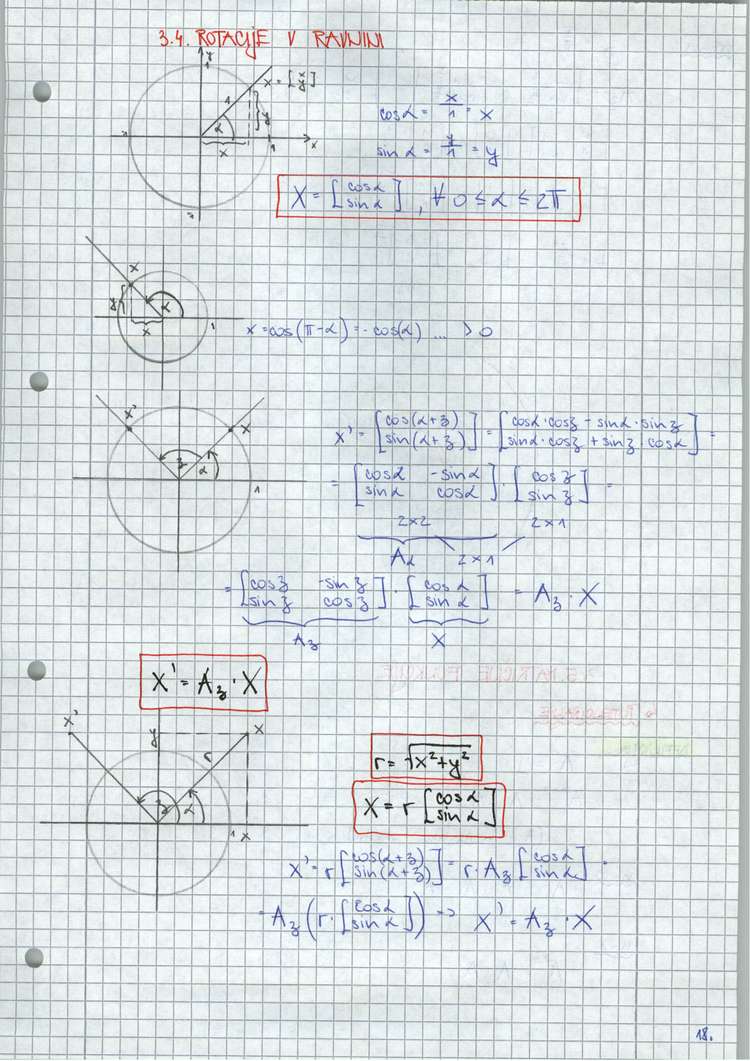 3.4. ROTACIJE V RAVNINI
y
1
X = [x y]
1
α
y
x
1
x
cosα = x/1 = x
sinα = y/1 = y
X = [cosα sinα], ∀ 0 ≤ α ≤ 2π
x
y
α
x
1
x = cos(π-α) = -cos(α) ... > 0
X'
X
α
1
X' = [cos(α+z) sin(α+z)] = [cosα·cosz - sinα·sinz sinα·cosz + sinz·cosα] =
= [cosα -sinα sinα cosα] · [cosz sinz] =
2×2 2×1
Aα 2×1
= [cosz -sinz sinz cosz] · [cosα sinα] = Az · X
Az X
X' = Az · X
X'
y
X
r
z
α
1
x
r = √x²+y²
X = r [cosα sinα]
X' = r [cos(α+z) sin(α+z)] = r · Az [cosα sinα] =
= Az (r · [cosα sinα]) => X' = Az · X
18.